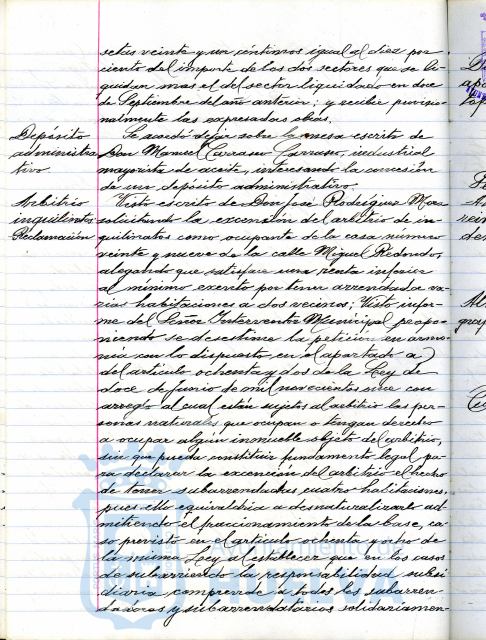 setas veinte y un céntimos igual al diez por
ciento del importe de los dos sectores que se li-
quidan mas el del sector liquidado en doce
de Septiembre del año anterior; y recibir provisio-
nalmente las expresadas obras.
Depósito
administra
tivo.
Se acordó dejar sobre la mesa escrito de
Don Manuel Carrasco Carrasco, industrial
mayorista de aceite, interesando la concesión
de un depósito administrativo.
Arbitrio
inquilinatos
Reclamación
Visto escrito de Don José Rodríguez Mas
solicitando la excensión del arbitrio de in-
quilinatos como ocupante de la casa número
veinte y nueve de la calle Miguel Redondo,
alegando que satisface una renta inferior
al mínimo exento por tener arrendadas va-
rias habitaciones a dos vecinos; Visto infor-
me del Señor Interventor Municipal propo-
niendo se desestime la petición en armo-
nía con lo dispuesto en el apartado a)
del artículo ochenta y dos de la Ley de
doce de junio de mil novecientos once con
arreglo al cual están sujetos al arbitrio las per-
sonas naturales que ocupan o tengan derecho
a ocupar algún inmueble objeto del arbitrio,
sin que pueda constituir fundamento legal pa-
ra declarar la excención del arbitrio el hecho
de tener subarrendadas cuatro habitaciones,
pues ello equivaldría a desnaturalizarlo ad-
mitiendo el fraccionamiento de la base, ca-
so previsto en el artículo ochenta y ocho de
la misma Ley al establecer que en los casos
de subarriendo la responsabilidad subsi
diaria comprende a todos los subarren-
dadores y subarrendatarios solidariamen-